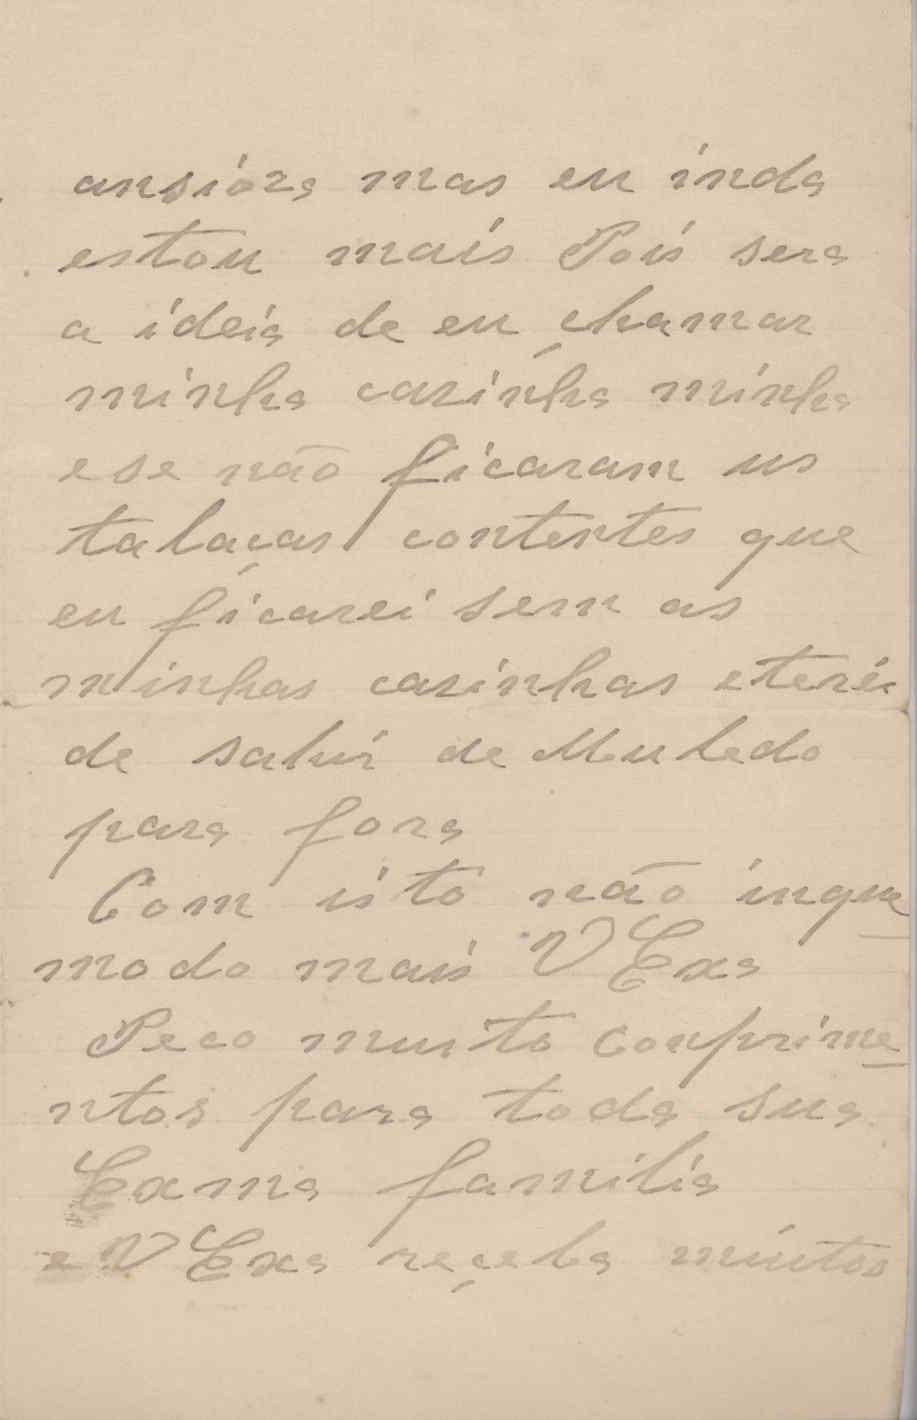 ansioza mas eu inda
estou mais Pois sera
a ideia de eu çhamar
minha cazinha minha
e se não ficaram us
talaças contentes que
eu ficarei sem as
minhas cazinhas e terei
de sahir de Muledo
para fora
Com isto não inque
modo mais V Exa
Peco muito conprime
ntos para toda sua
Exma familia
e V Exa reçeba muitos